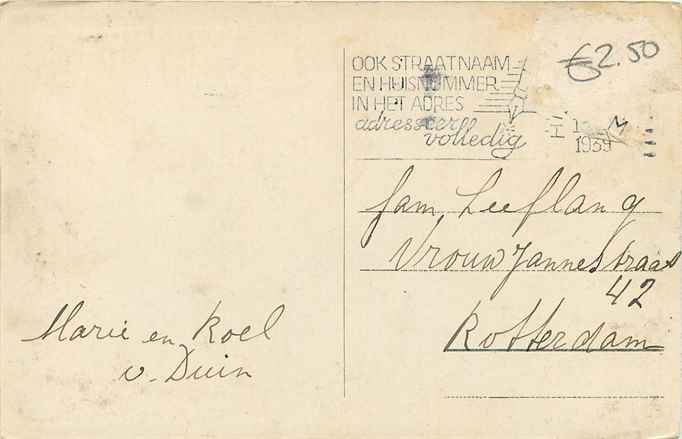 €2.50
OOK STRAATNAAM
EN HUISNUMMER
IN HET ADRES
adresseert
volledig
1939
fam Leeflang
Vrouw Jannestraat
42
Rotterdam
Marie en Roel
v. Duin